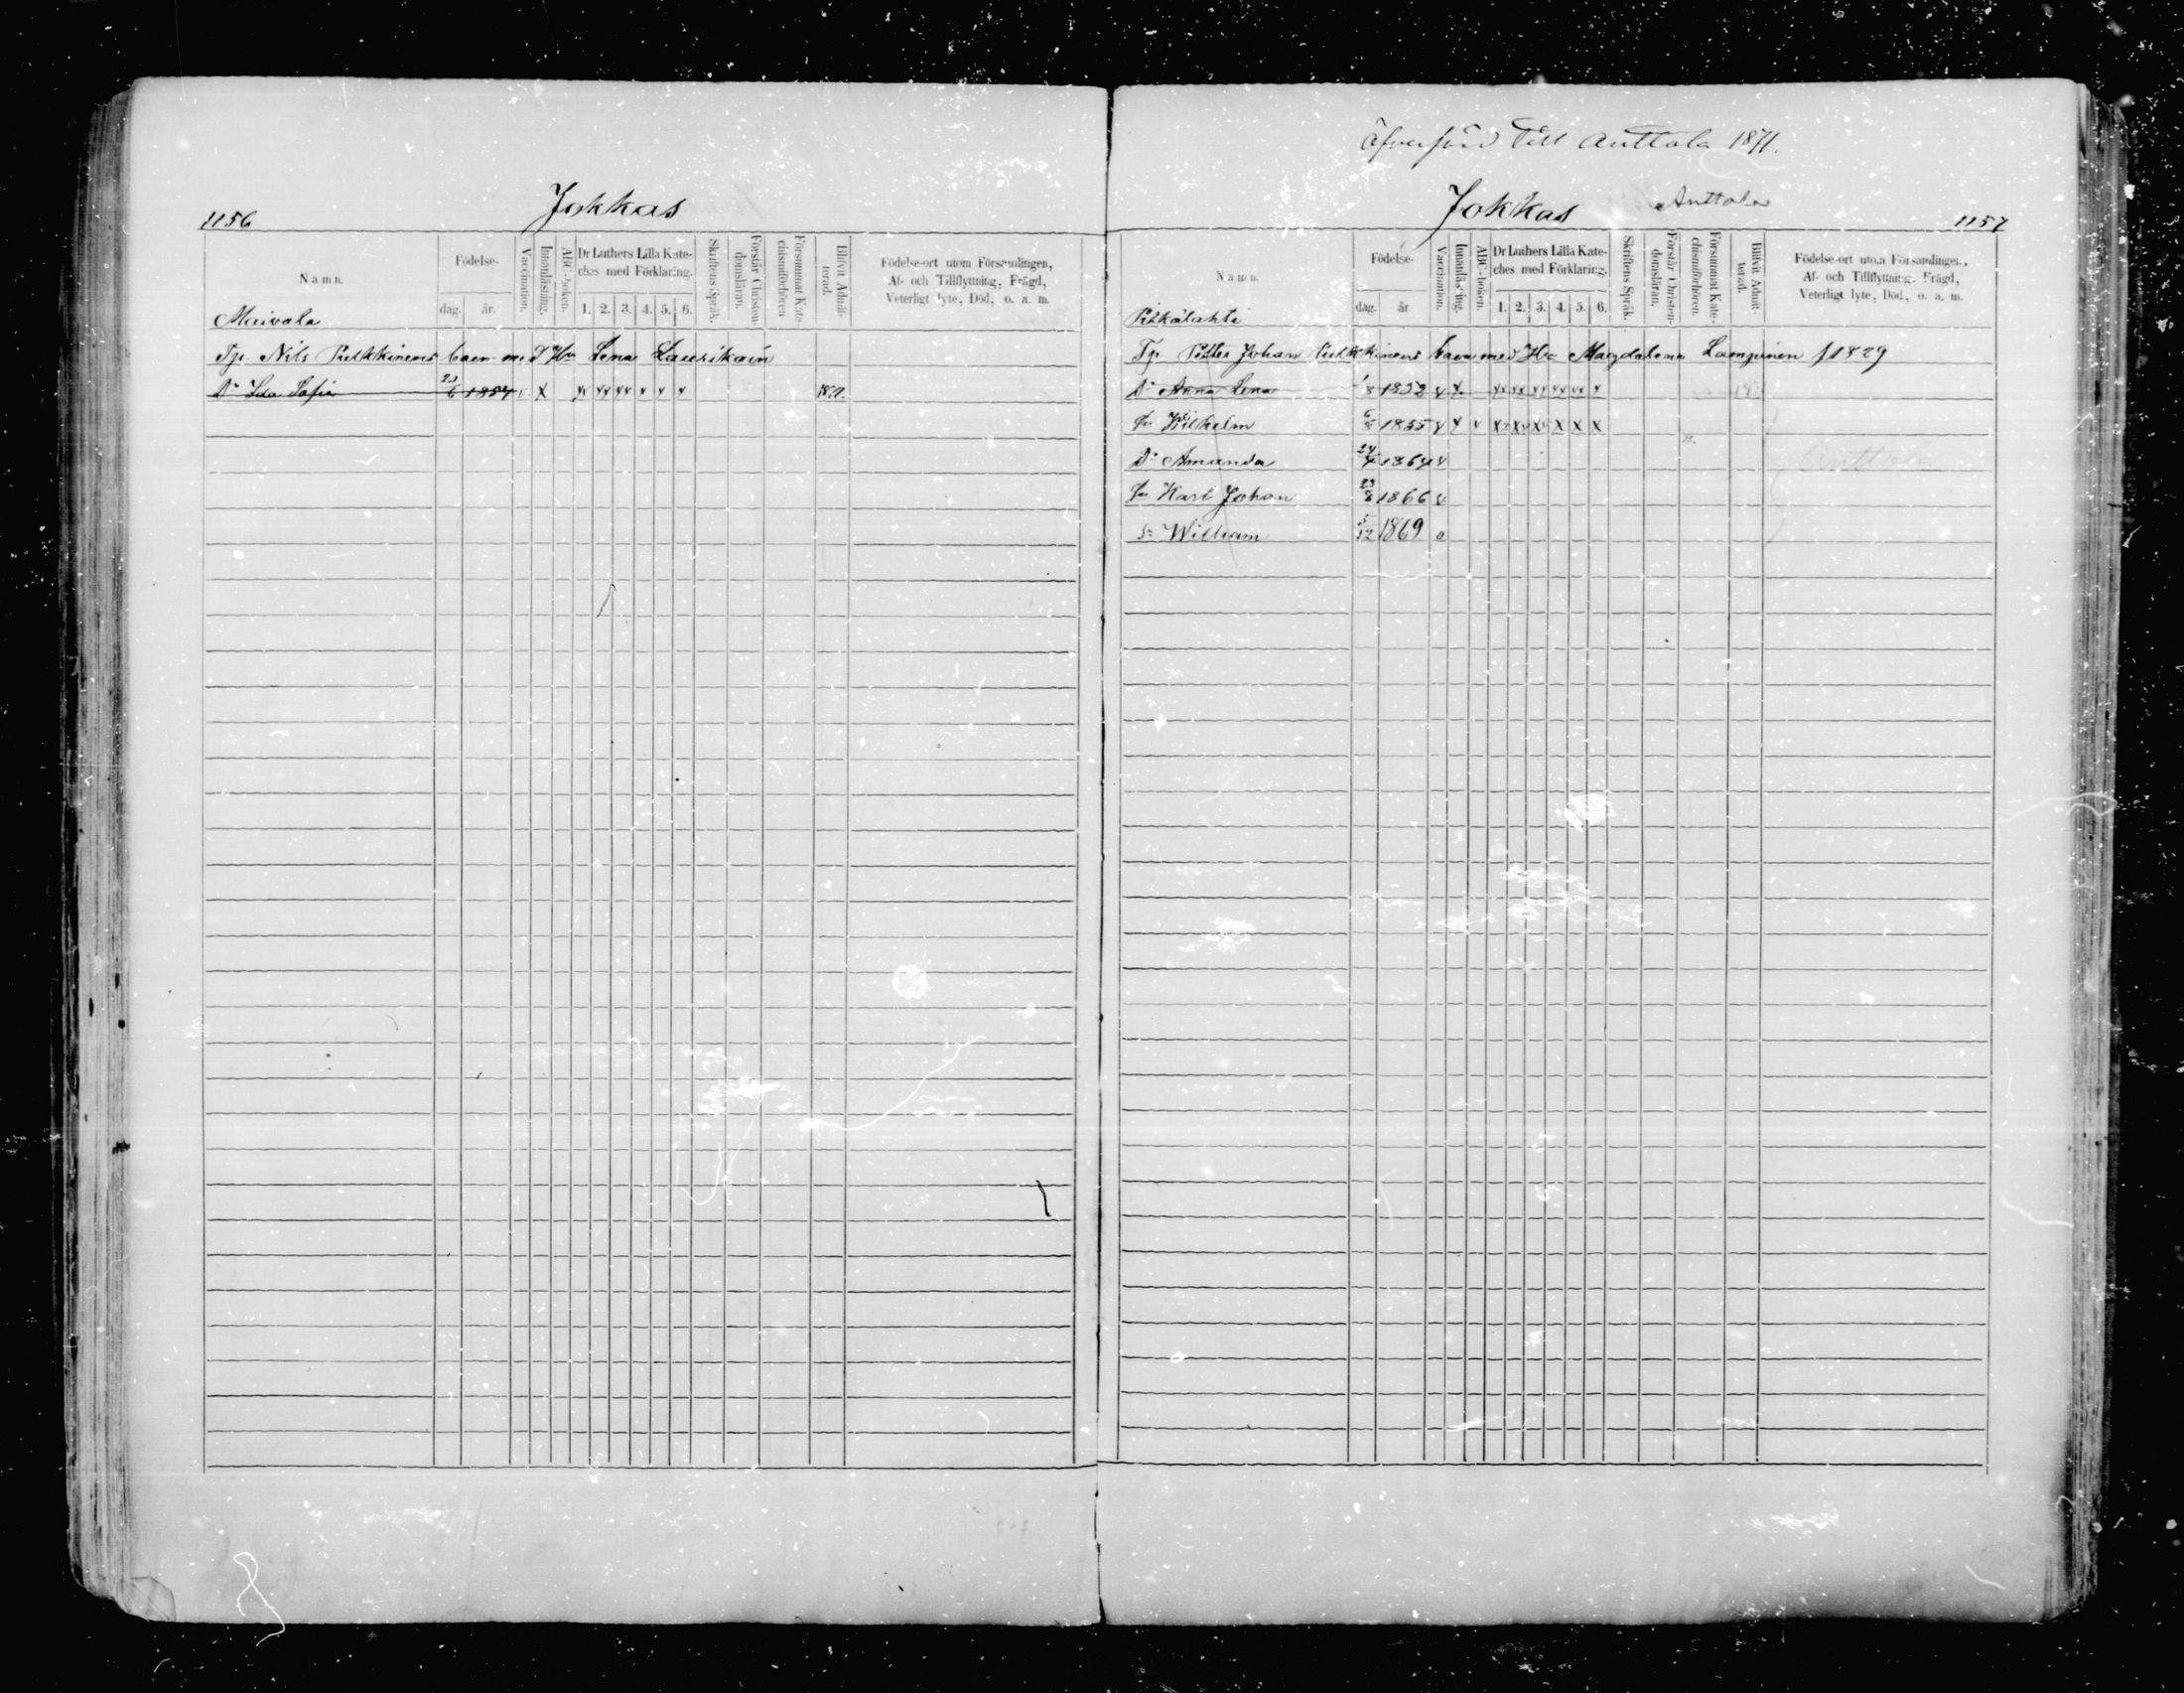 1156
Jokkas
Namn.
Födelse-
dag. år.
Vaccination.
Innanläsning.
ABC-boken.
Dr Luthers Lilla Kate-
ches med Förklaring.
1. 2. 3. 4. 5. 6.
Skriftens Språk.
Förstår Christen-
domsläran.
Försummat Kate-
chismiförhören
Blifvit Admit-
terad.
Födelse-ort utom Församlingen,
Af- och Tillflyttning, Frägd,
Veterligt lyte, Död, o. a. m.
Maivala
Tp. Nils Pulkkinens barn Hu Lena Laurikain
Dr Ida Sofia 23/6 1854 x
öfverförd till Anttola 1871.
Jokkas Anttola
1157
Namn.
Födelse-
dag. år
Vaccination.
Innanläsning.
ABC-boken.
Dr Luthers Lilla Kate-
ches med Förklaring.
1. 2. 3. 4. 5. 6.
Skriftens Språk.
Förstår Christen-
domsläran.
Försummat Kate-
chismiförhören.
Blifvit Admit-
terad.
Födelse-ort utom Församlingen,
Af- och Tillflyttning, Frägd,
Veterligt lyte, Död, o. a. m.
Pitkälahti
Tp. Petter Johan Pulkkinens barn med Hu Magdalena Lampinen f 1829
Dr Anna Lena 1852
Wilhelm 1855
Dr Amanda 1864
Karl Johan 23/8 1866
Sn William 5/12 1869